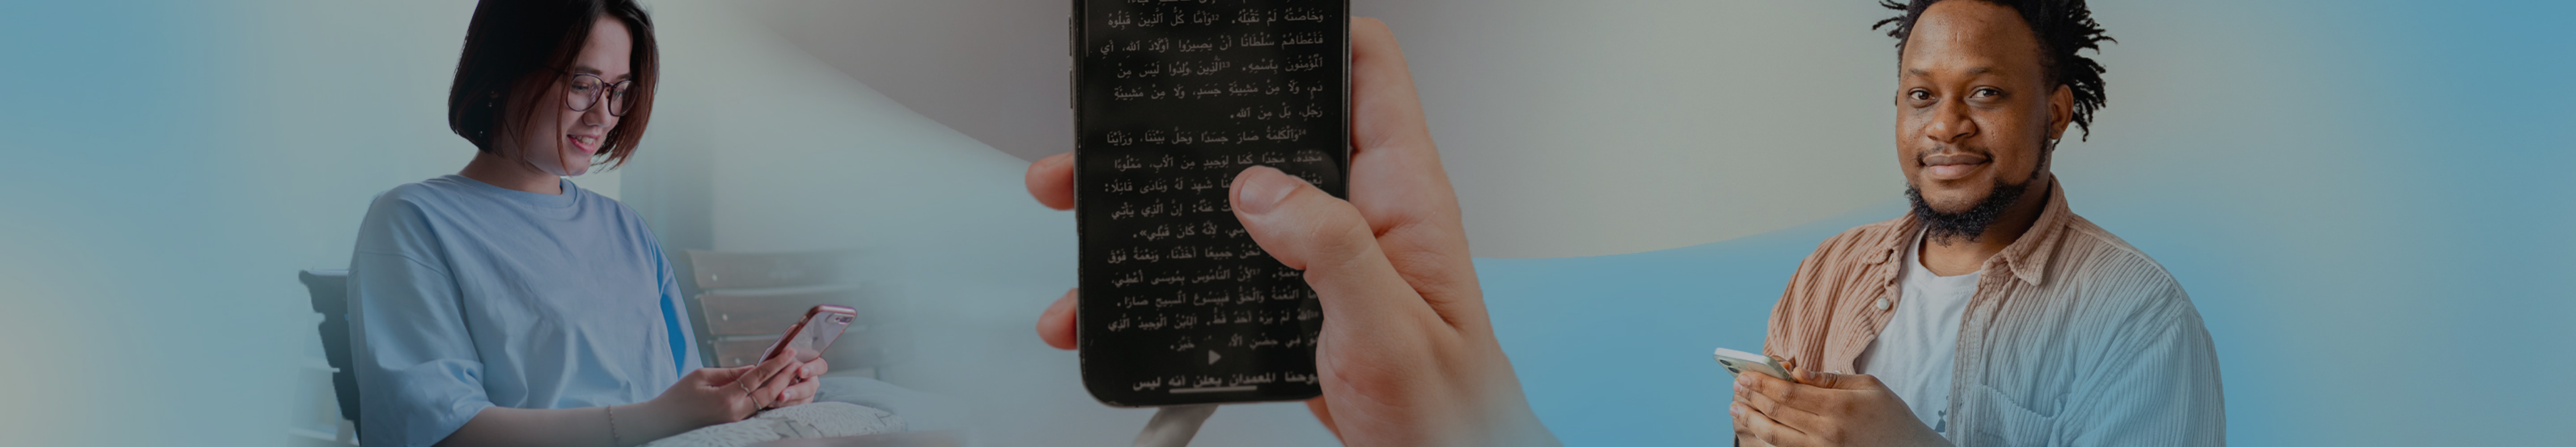 وَخَاصَّتُهُ لَمْ تَقْبَلْهُ. 12وَأَمَّا كُلُّ ٱلَّذِينَ قَبِلُوهُ
فَأَعْطَاهُمْ سُلْطَانًا أَنْ يَصِيرُوا أَوْلَادَ ٱللهِ، أَيِ
ٱلْمُؤْمِنُونَ بِٱسْمِهِ. 13اَلَّذِينَ وُلِدُوا لَيْسَ مِنْ
دَمٍ، وَلَا مِنْ مَشِيئَةِ جَسَدٍ، وَلَا مِنْ مَشِيئَةِ
رَجُلٍ، بَلْ مِنَ ٱللهِ.
14وَٱلْكَلِمَةُ صَارَ جَسَدًا وَحَلَّ بَيْنَنَا، وَرَأَيْنَا
مَجْدَهُ، مَجْدًا كَمَا لِوَحِيدٍ مِنَ ٱلْآبِ، مَمْلُوءًا
شَهِدَ لَهُ وَنَادَى قَائِلًا:
عَنْهُ: إِنَّ ٱلَّذِي يَأْتِي
لِأَنَّهُ كَانَ قَبْلِي».
نَحْنُ جَمِيعًا أَخَذْنَا، وَنِعْمَةً فَوْقَ
نِعْمَةٍ. 17لِأَنَّ ٱلنَّامُوسَ بِمُوسَى أُعْطِيَ،
ٱلنِّعْمَةُ وَٱلْحَقُّ فَبِيَسُوعَ ٱلْمَسِيحِ صَارَا.
18ٱللهُ لَمْ يَرَهُ أَحَدٌ قَطُّ. اَلِٱبْنُ ٱلْوَحِيدُ ٱلَّذِي
فِي حِضْنِ خَبَّرَ.
يوحنا المعمدان يعلن أنه ليس